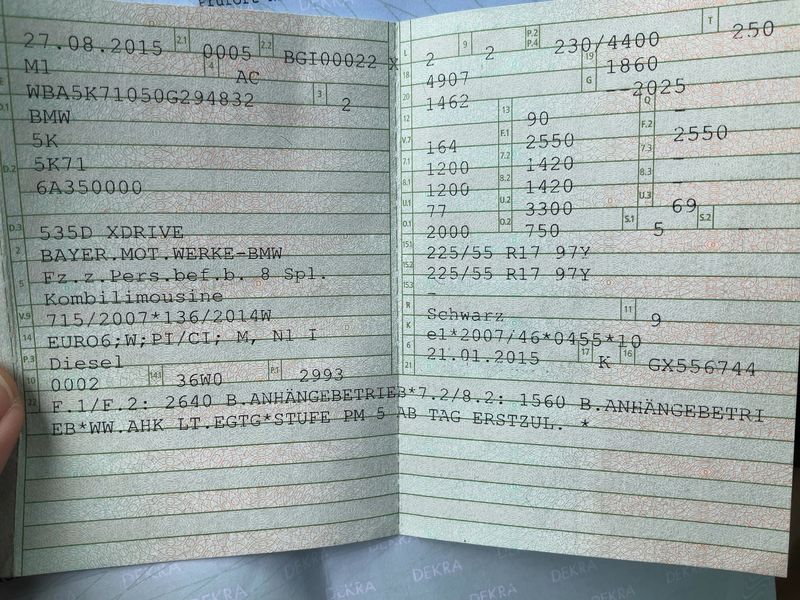 27.08.2015 2.1 0005 2.2 BGI00022 X
M1 4 AC
WBA5K71050G294832 3 2
D.1 BMW
5K
D.2 5K71
6A350000
D.3 535D XDRIVE
2 BAYER.MOT.WERKE-BMW
5 Fz.z.Pers.bef.b. 8 Spl.
Kombilimousine
V.9 715/2007*136/2014W
14 EURO6;W;PI/CI; M, N1 I
P.3 Diesel
10 0002 14.1 36W0 P.1 2993
L 2 9 2 P.2 P.4 230/4400 T 250
18 4907 19 G 1860
20 1462 --2025
12 - 13 90 Q -
V.7 164 F.1 2550 F.2 2550
7.1 1200 7.2 1420 7.3 -
8.1 1200 8.2 1420 8.3 -
U.1 77 U.2 3300 U.3 69
O.1 2000 O.2 750 S.1 5 S.2 -
15.1 225/55 R17 97Y
15.2 225/55 R17 97Y
15.3 -
R Schwarz 11 9
K e1*2007/46*0455*10
6 21.01.2015 17 K 16 GX556744
21
22 F.1/F.2: 2640 B.ANHÄNGEBETRIEB*7.2/8.2: 1560 B.ANHÄNGEBETRI
EB*WW.AHK LT.EGTG*STUFE PM 5 AB TAG ERSTZUL. *
DEKRA DEKRA DEKRA DEKRA